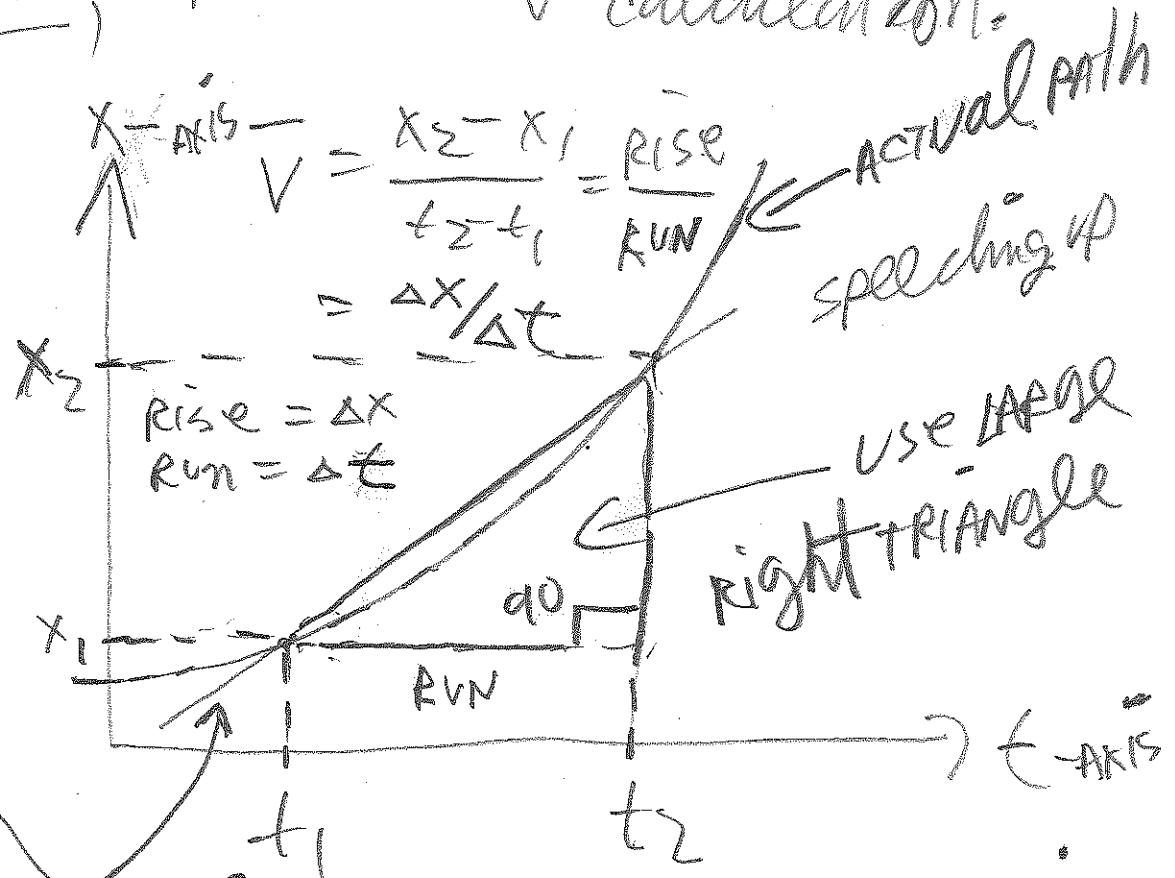 calculation.
X-AXIS
V̄ = X2 - X1 / t2 - t1 = RISE / RUN
= ΔX/Δt
ACTUAL PATH
speeding up
X2
RISE = ΔX
RUN = Δt
USE LARGE
Right TRIANGLE
90
X1
RUN
t-AXIS
t1
t2